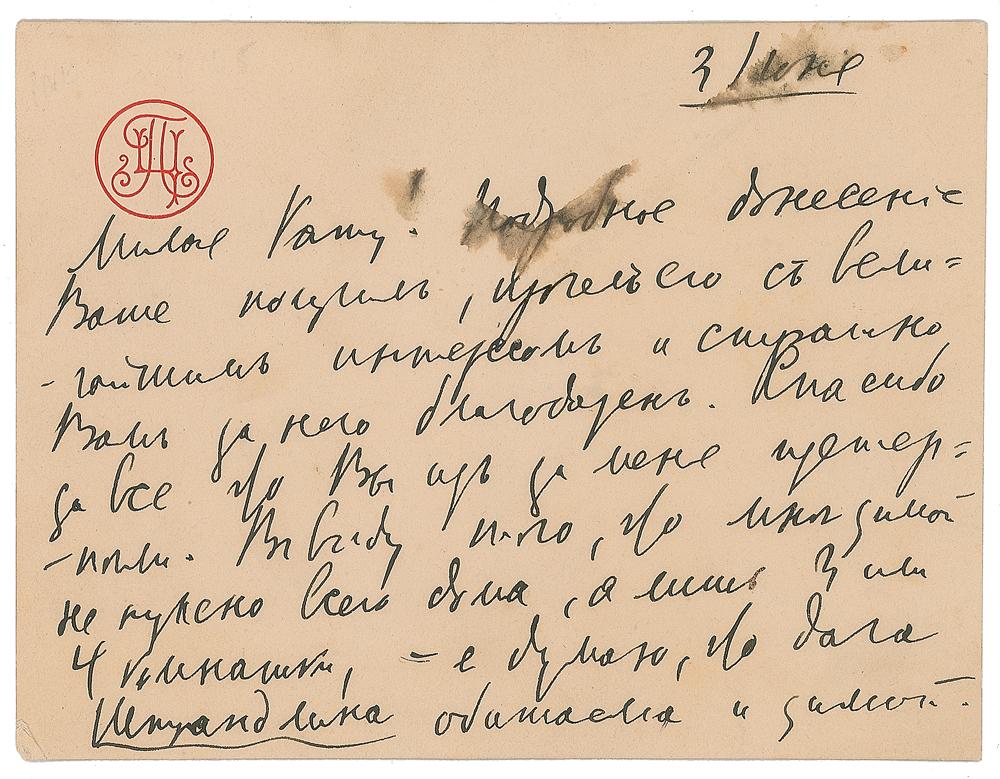 3 Июня
Милая Кошу. Подробное донесеніе
Ваше получилъ, прочелъ его съ вели=
-чайшимъ интересомъ и страшно
Вамъ за него благодаренъ. Спасибо
за все что Вы изъ за меня претер=
-пели. Въ виду того, что мнѣ зимой
не нужено всего дома, а лишь 3 или
4 комнатки, – я думаю, что дача
Штрандмана обитаема и зимой.